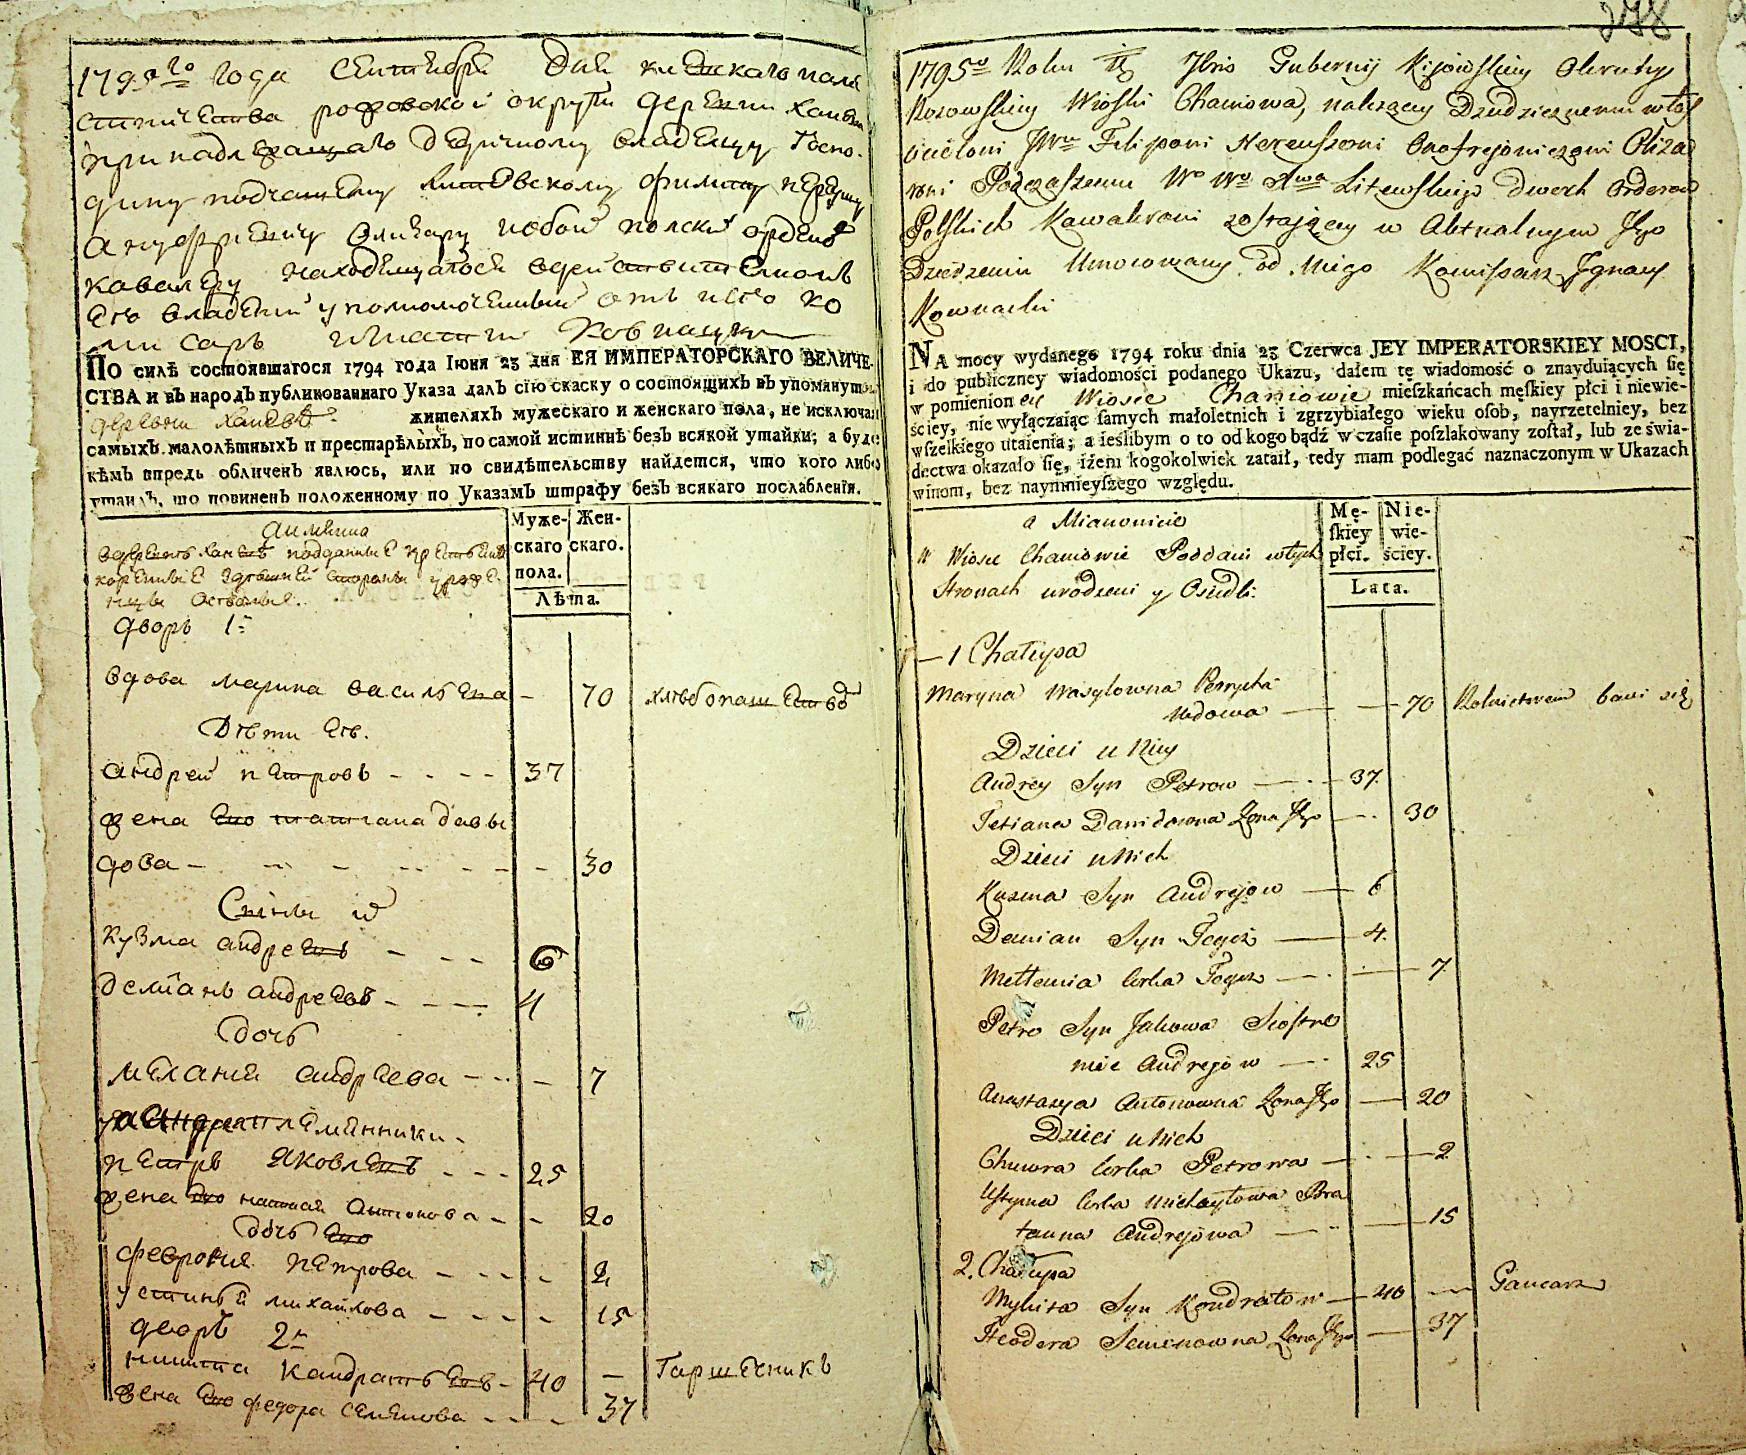 278
1795го года сентебра дня киевскаго наме
стничества родовской округи деревни хане
принадлежащаго дедичному владелцу Госпо-
дину подчашему литовскому филипу нереушу
ануфриевичу оливару и обои полски орденов
кавалеру находящагося в действителномъ
его владении уполномоченный отъ него ко
мисаръ игнатий Ковнацки
ПО силѣ состоявшагося 1794 года Іюня 23 дня ЕЯ ИМПЕРАТОРСКАГО ВЕЛИЧЕ-
СТВА и въ народъ публикованнаго Указа далъ сію скаску о состоящихъ въ упомянутой
деревни Ханевѣ жителяхъ мужескаго и женскаго пола, не исключая
самыхъ малолѣтныхъ и престарѣлыхъ, по самой истиннѣ безъ всякой утайки; а буде
кѣмъ впредь обличенъ явлюсь, или по свидѣтельству найдется, что кого либо
утаилъ, то повиненъ положенному по Указамъ штрафу безъ всякаго послабленія.
а имянно
в деревнѣ ханевѣ подданные крестьяне
коренные здешней стороны уроже-
нцы оседлые
Муже-скаго пола. Жен-скаго.
Лѣта.
дворъ 1й
вдова марина василева - 70 хлѣбопашество
Дѣти ее.
андрей петровъ - - - - 37
жена его татиана давы
дова - - - - - - 30
Сыны их
кузма андреевъ - - - 6
демianъ андреевъ - - - 4
дочь
мелания андреева - - - 7
у андрея племянники
петръ яковлевъ - - - 25
жена его настасия антонова - - 20
дочь его
феврония петрова - - - - 2
устиния михайлова - - - - 15
дворъ 2й
никита кандратьевъ - 40 - Гаршечникъ
жена его федора семенова - - - 37
1795o Roku 7bris Gubernij Kijowskiey Okrutgu
Rozowskiey Wioski Chaniowa, należącey Dziedzicznemu włas
cicielowi JWmu Filipowi Nereuszowi Onofrejowiczowi Oliza
rowi Podczaszemu Wo Wo Xwa Litewskiego dwoch Orderow
Polskich Kawalerowi zostającey w Aktualnym Jego
Dziedzeniu Umocowany od niego Komissarz Ignacy
Kownacki
NA mocy wydanego 1794 roku dnia 23 Czerwca JEY IMPERATORSKIEY MOSCI,
i do publiczney wiadomości podanego Ukazu, dałem tę wiadomość o znayduiących się
w pomienioney Wiosce Chaniowie mieszkańcach męskiey płci i niewie-
ściey, nie wyłączaiąc samych małoletnich i zgrzybiałego wieku osob, nayrzetelniey, bez
wszelkiego utaienia; a ieślibym o to od kogo bądź w czasie poszlakowany został, lub ze świa-
dectwa okazało się, iżem kogokolwiek zataił, tedy mam podlegać naznaczonym w Ukazach
winom, bez naymnieyszego względu.
a Mianowicie
w Wiosce Chaniowie Poddani w tych
Stronach urodzeni y Osiedli:
Mę-skiey płci. Nie-wie-ściey.
Lata.
1 Chałupa
Maryna Wasylowna Petrycha
Wdowa — — 70 Rolnictwem bawi się
Dzieci u Niey
Andrey Syn Petrow — 37.
Tetiana Dawidowna Zona Jego — 30
Dzieci u Nich
Kuzma Syn Andrejow — 6
Demian Syn Tegoż — 4.
Mełania Corka Tegoż — 7
Petro Syn Jakowa Siostrze
niec Andrejów — 25
Anastazya Antonowna Zona Jego — 20
Dzieci u Nich
Chewra Corka Petrowa — 2
Ustyna Corka Michayłowa Bra
tanna Andrejowa — 15
2. Chałupa
Mykita Syn Kondratow — 40 — Gancarz
Teodora Semenowna Zona Jego — 37